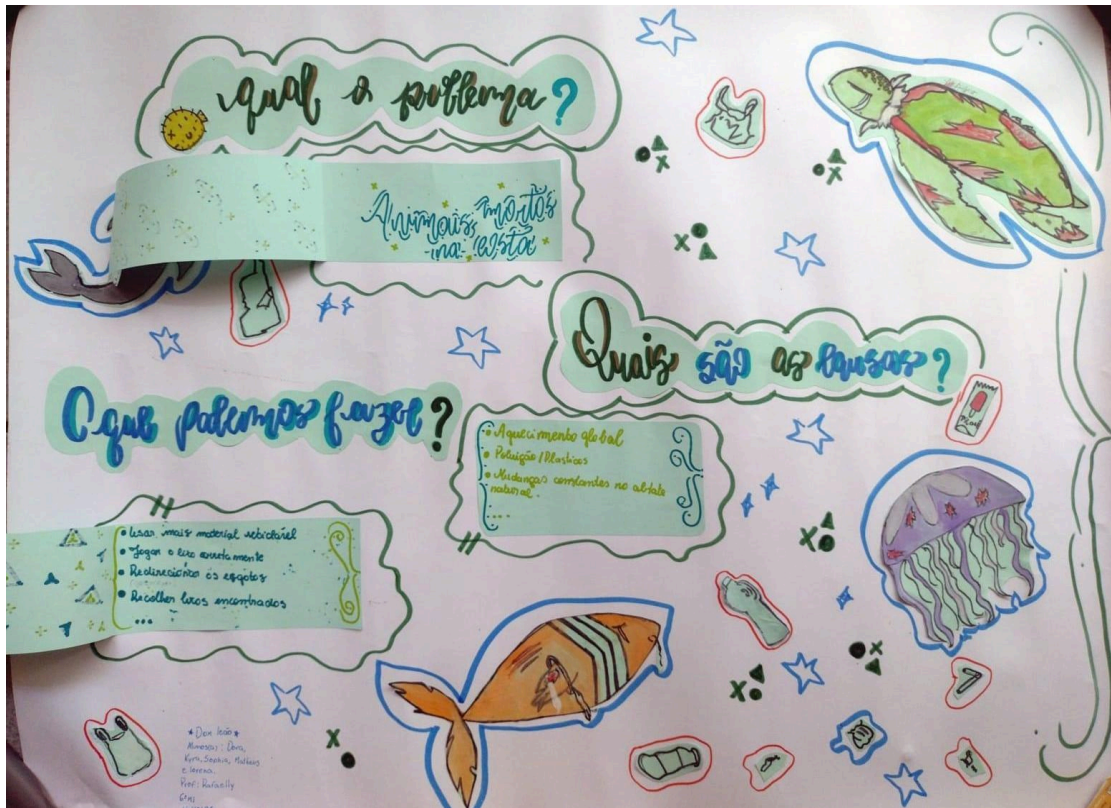 qual o poblema?
Animais mortos
na costa
Quais são as causas?
• Aquecimento global
• Poluição/Plasticos
• Mudanças constantes no abitate
natural.
....
O que podemos fazer?
• Usar mais material reciclável
• Jogar o lixo corretamente
• Redirecionar os esgotos
• Recolher lixos encontrados
...
* Dom João *
Alunos(as): Dora,
Kyra, Sophia, Matheus
e Lorena.
Prof: Rafaelly
6º M1